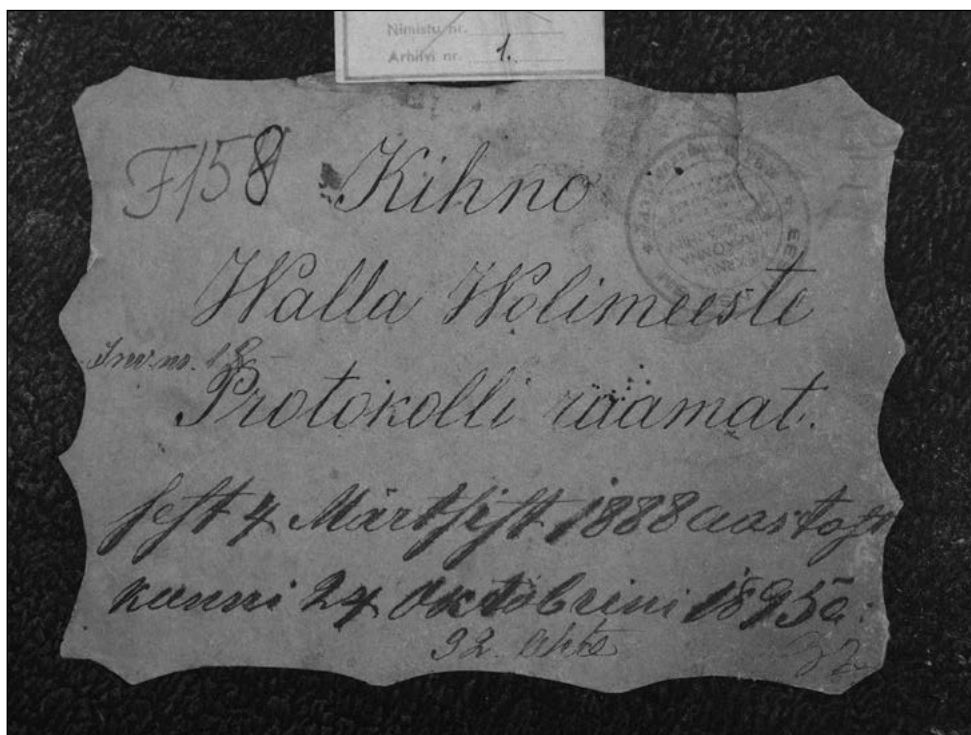 Nimistu nr.
Arhiivi nr. 1.
F158 Kihno
Walla Wolimeeste
Inv. no. 18
Protokolli räämat.
sest 4 Märtsist 1888 aastast
kunni 24 Oktobrini 1895 a.
92. lehte